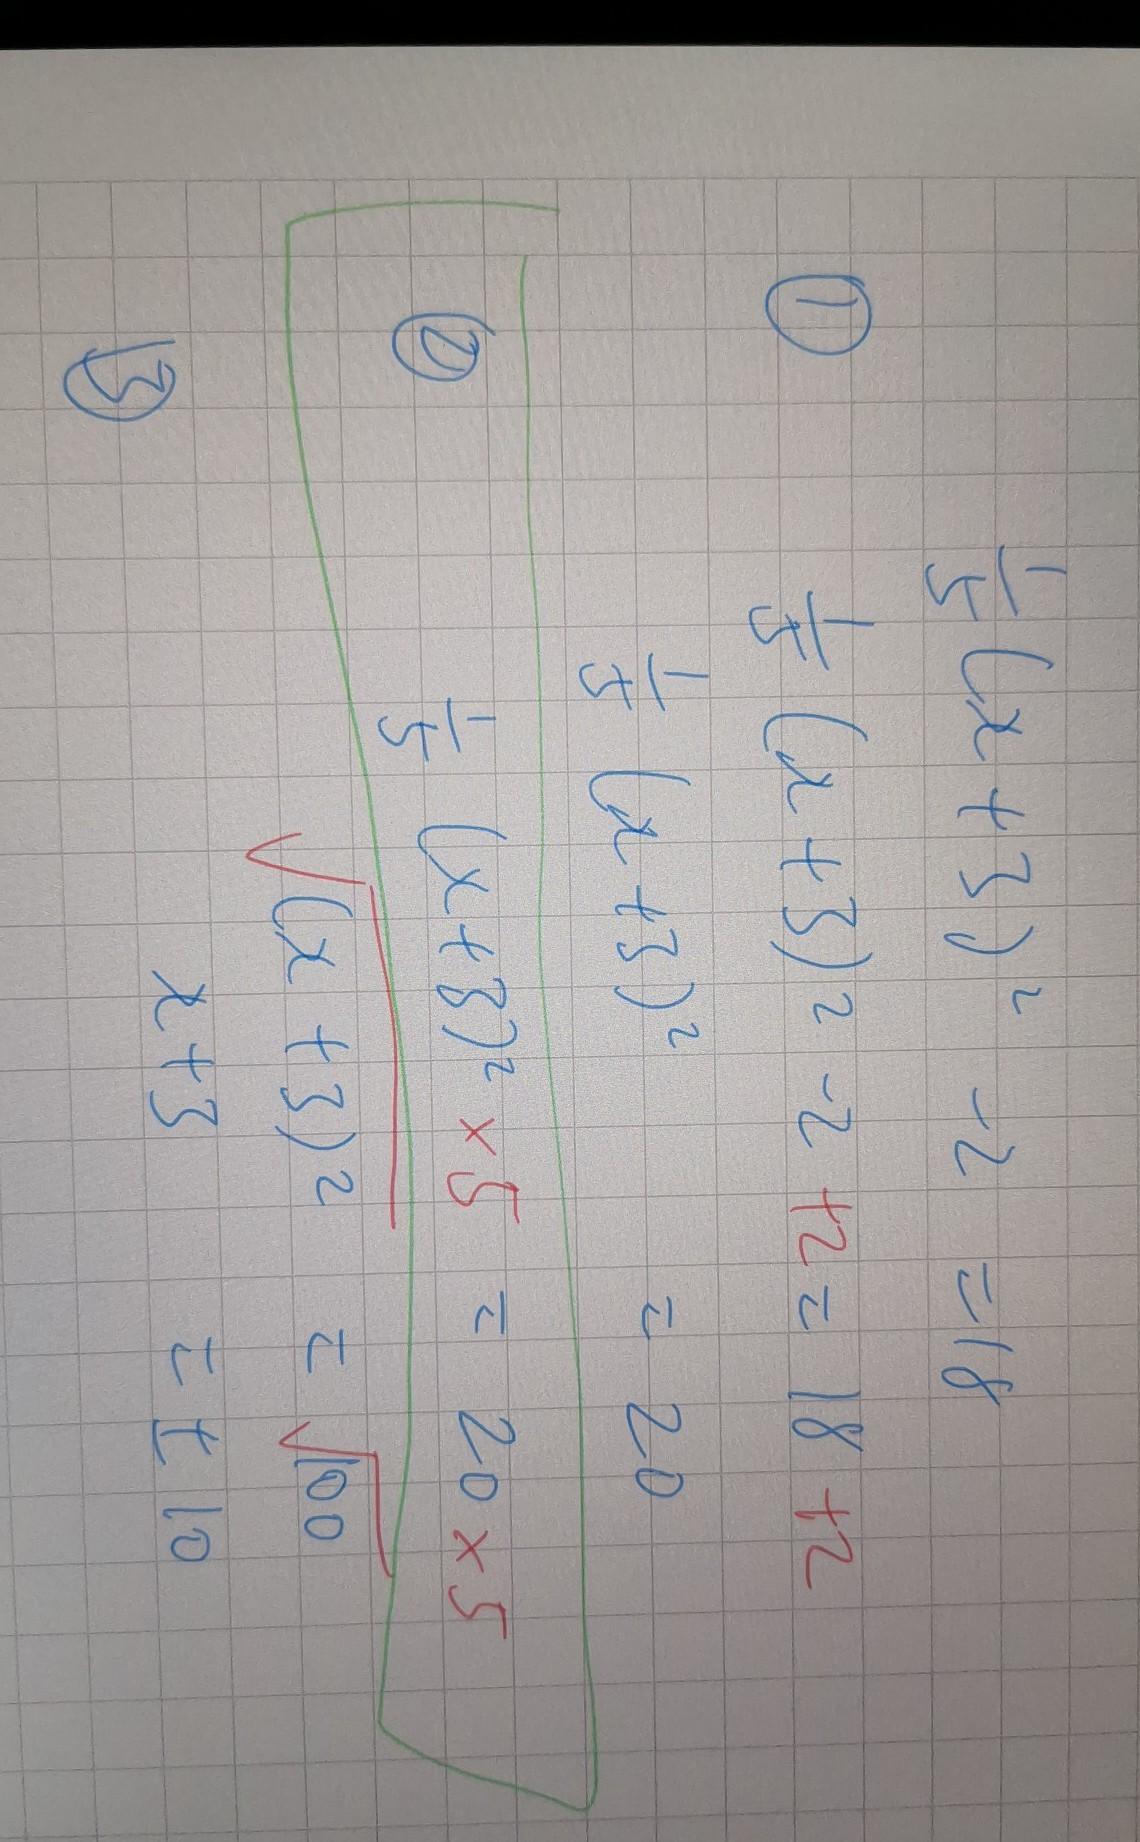 1/5 (x+3)² -2 = 18
① 1/5 (x+3)² -2 +2 = 18 +2
1/5 (x+3)² = 20
② 1/5 (x+3)² ×5 = 20 ×5
√(x+3)² = √100
③ x+3 = ±10